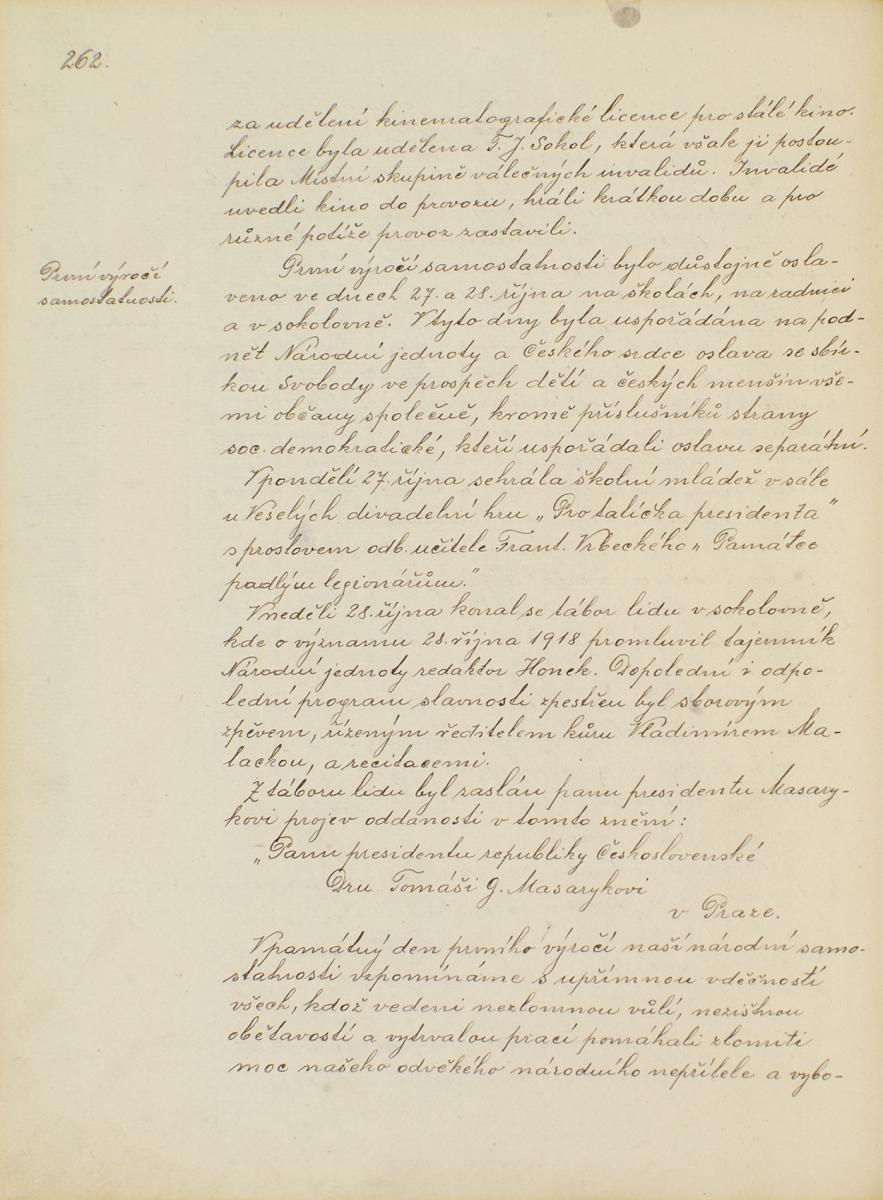 262.
za udělení kinematografické licence pro stálé kino.
Licence byla udělena T. J. Sokol, která však ji postou-
pila Místní skupině válečných invalidů. Invalidé
uvedli kino do provozu, hráli krátkou dobu a pro
různé potíže provoz zastavili.
První výročí
samostatnosti.
První výročí samostatnosti bylo důstojně osla-
veno ve dnech 27. a 28. října na školách, na radnici
a v sokolovně. V tyto dny byla uspořádána na pod-
nět Národní jednoty a Českého srdce oslava se sbír-
kou Svobody ve prospěch dětí a českých menšin vše-
mi občany společně, kromě příslušníků strany
soc. demokratické, kteří uspořádali oslavu separátní.
V pondělí 27. října sehrála školní mládež v sále
u Veselých divadelní hru „Pro talíčka presidenta"
s proslovem odb. učitele Frant. Vrbeckého „Památce
padlým legionářům."
V neděli 28. října konal se tábor lidu v sokolovně,
kde o významu 28. října 1918 promluvil tajemník
Národní jednoty redaktor Honek. Dopolední i odpo-
lední program slavnosti zpestřen byl sborovým
zpěvem, řízeným ředitelem kůru Vladimírem Ma-
lackou, a recitacemi.
Z táboru lidu byl zaslán panu presidentu Masary-
kovi projev oddanosti v tomto znění:
„Panu presidentu republiky Československé
Dru Tomáši G. Masarykovi
v Praze.
V památný den prvního výročí naší národní samo-
statnosti vzpomínáme s upřímnou vděčností
všech, kdož vedeni nezlomnou vůlí, nezištnou
obětavostí a vytrvalou prací pomáhali zlomiti
moc našeho odvěkého národního nepřítele a vybo-